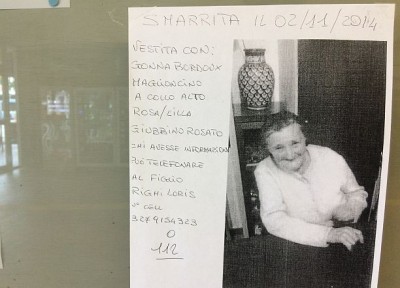 SMARRITA IL 02/11/2014
VESTITA CON:
GONNA BORDOUX
MAGLIONCINO
A COLLO ALTO
ROSA/LILLA
GIUBBINO ROSATO
CHI AVESSE INFORMAZIONI
PUÒ TELEFONARE
AL FIGLIO
RIGHI LORIS
N° CELL
3279134323
O
112